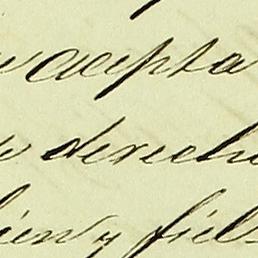 acepta
derecho
bien y fiel